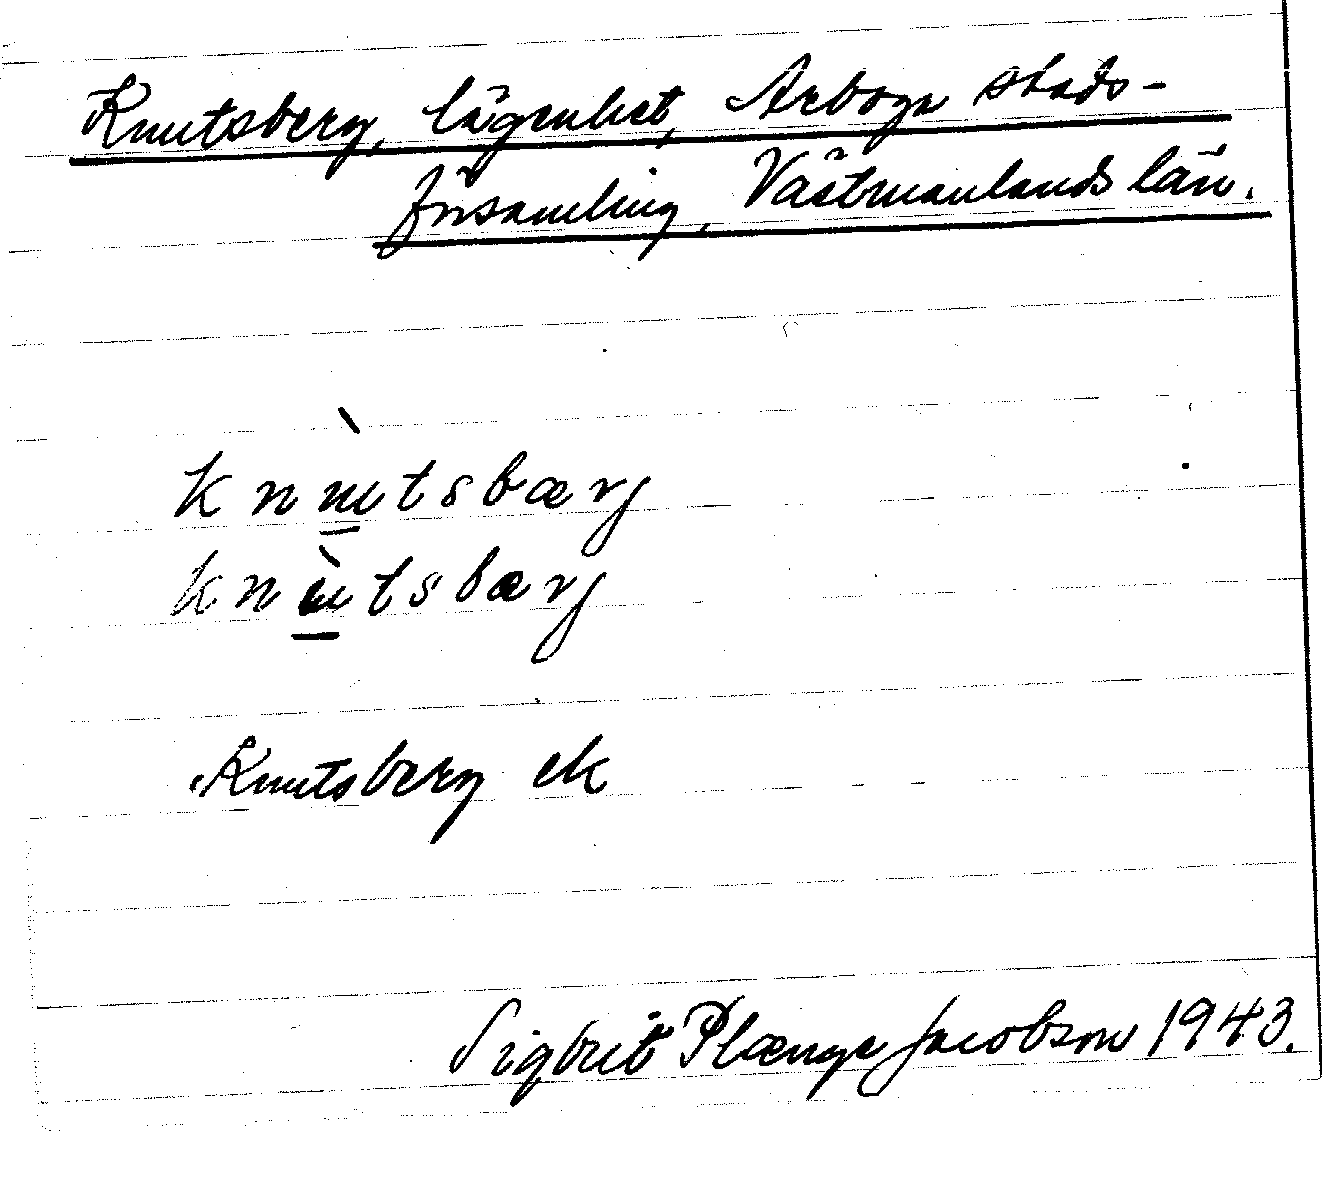 Knutsberg, lägenhet, Arboga stads-
församling, Västmanlands län.
knùtsbærj
knùtsbærj
Knutsberg ek
Sigbrit Plænge Jacobson 1943.